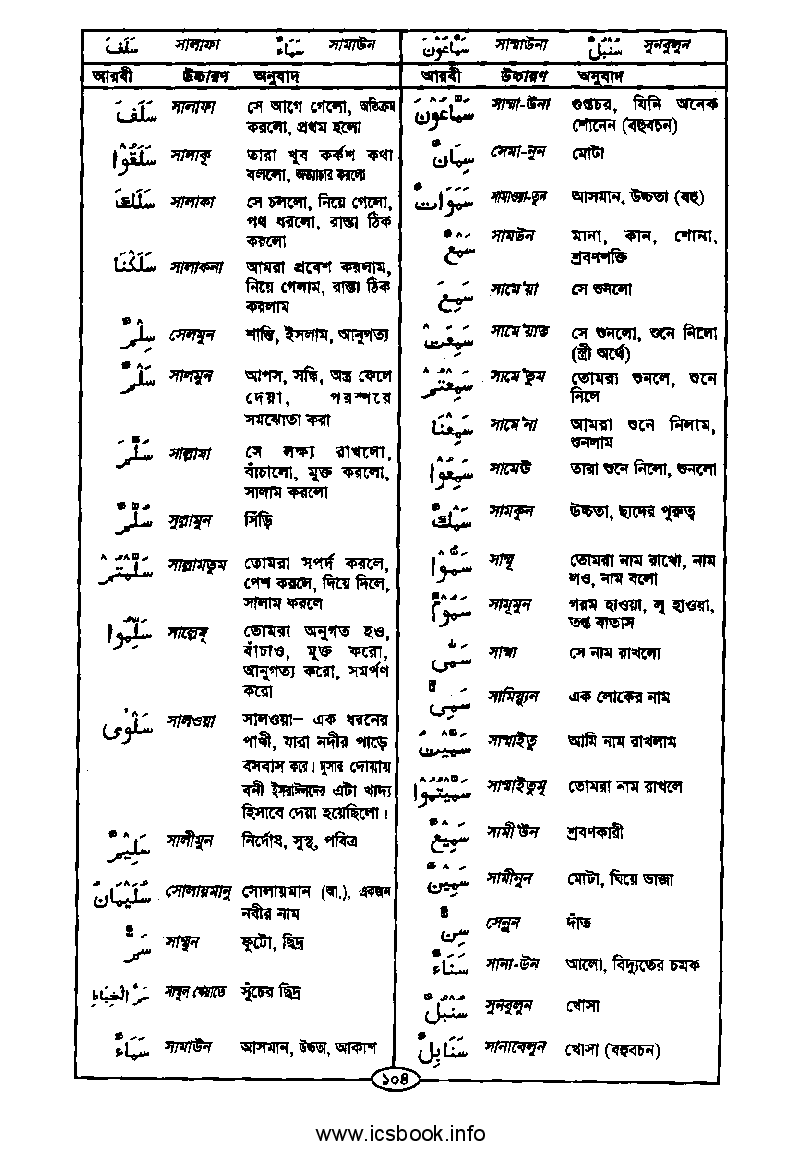 سَلَفَ সালাফা سَمَاءٌ সামাউন
আরবী উচ্চারণ অনুবাদ
سَلَفَ সালাফা সে আগে গেলো, অতিক্রম
করলো, প্রথম হলো
سَلَقُوْا সালাকূ তারা খুব কর্কশ কথা
বললো, অত্যাচার করলো
سَلَكَ সালাকা সে চললো, নিয়ে গেলো,
পথ ধরলো, রাস্তা ঠিক
করলো
سَلَكْنَا সালাকনা আমরা প্রবেশ করলাম,
নিয়ে গেলাম, রাস্তা ঠিক
করলাম
سِلْمٌ সেলমুন শান্তি, ইসলাম, আনুগত্য
سَلْمٌ সালমুন আপস, সন্ধি, অস্ত্র ফেলে
দেয়া, পরস্পরে
সমঝোতা করা
سَلَّمَ সাল্লামা সে লক্ষ্য রাখলো,
বাঁচালো, মুক্ত করলো,
সালাম করলো
سُلَّمٌ সুল্লামুন সিঁড়ি
سَلَّمْتُمْ সাল্লামতুম তোমরা সপর্দ করলে,
পেশ করলে, দিয়ে দিলে,
সালাম করলে
سَلِّمُوْا সাল্লেমূ তোমরা অনুগত হও,
বাঁচাও, মুক্ত করো,
আনুগত্য করো, সমর্পণ
করো
سَلْوٰى সালওয়া সালওয়া– এক ধরনের
পাখী, যারা নদীর পাড়ে
বসবাস করে। মূসার দোয়ায়
বনী ইসরাঈলদের এটা খাদ্য
হিসাবে দেয়া হয়েছিলো।
سَلِيْمٌ সালীমুন নির্দোষ, সুস্থ, পবিত্র
سُلَيْمَانُ সোলায়মানু সোলায়মান (আ.), একজন
নবীর নাম
سَمٌّ সাম্মুন ফুটো, ছিদ্র
سَمُّ الْخِيَاطِ সাম্মুল খেয়াতে সূঁচের ছিদ্র
سَمَاءٌ সামাউন আসমান, উচ্চতা, আকাশ
سَمَّاعُوْنَ সাম্মাউনা سُنْبُلٌ সুনবুলুন
আরবী উচ্চারণ অনুবাদ
سَمَّاعُوْنَ সাম্মা-উনা গুপ্তচর, যিনি অনেক
শোনেন (বহুবচন)
سِمَانٌ সেমা-নুন মোটা
سَمٰوَاتٌ সামাওয়া-তুন আসমান, উচ্চতা (বহু)
سَمْعٌ সামউন মানা, কান, শোনা,
শ্রবণশক্তি
سَمِعَ সামে'য়া সে শুনলো
سَمِعَتْ সামে'য়াত সে শুনলো, শুনে নিলো
(স্ত্রী অর্থে)
سَمِعْتُمْ সামে'তুম তোমরা শুনলে, শুনে
নিলে
سَمِعْنَا সামে'না আমরা শুনে নিলাম,
শুনলাম
سَمِعُوْا সামেউ তারা শুনে নিলো, শুনলো
سَمْكٌ সামকুন উচ্চতা, ছাদের পুরুত্ব
سَمُّوْا সাম্মূ তোমরা নাম রাখো, নাম
লও, নাম বলো
سَمُوْمٌ সামূমুন গরম হাওয়া, লূ হাওয়া,
তপ্ত বাতাস
سَمّٰى সাম্মা সে নাম রাখলো
سَمِيٌّ সামিয়্যুন এক লোকের নাম
سَمَّيْتُ সাম্মাইতু আমি নাম রাখলাম
سَمَّيْتُمُوْا সাম্মাইতুমূ তোমরা নাম রাখলে
سَمِيْعٌ সামী'উন শ্রবণকারী
سَمِيْنٌ সামীনুন মোটা, ঘিয়ে ভাজা
سِنٌّ সেন্নুন দাঁত
سَنَاءٌ সানা-উন আলো, বিদ্যুতের চমক
سُنْبُلٌ সুনবুলুন খোসা
سَنَابِلُ সানাবেলুন খোসা (বহুবচন)
১০৪
www.icsbook.info